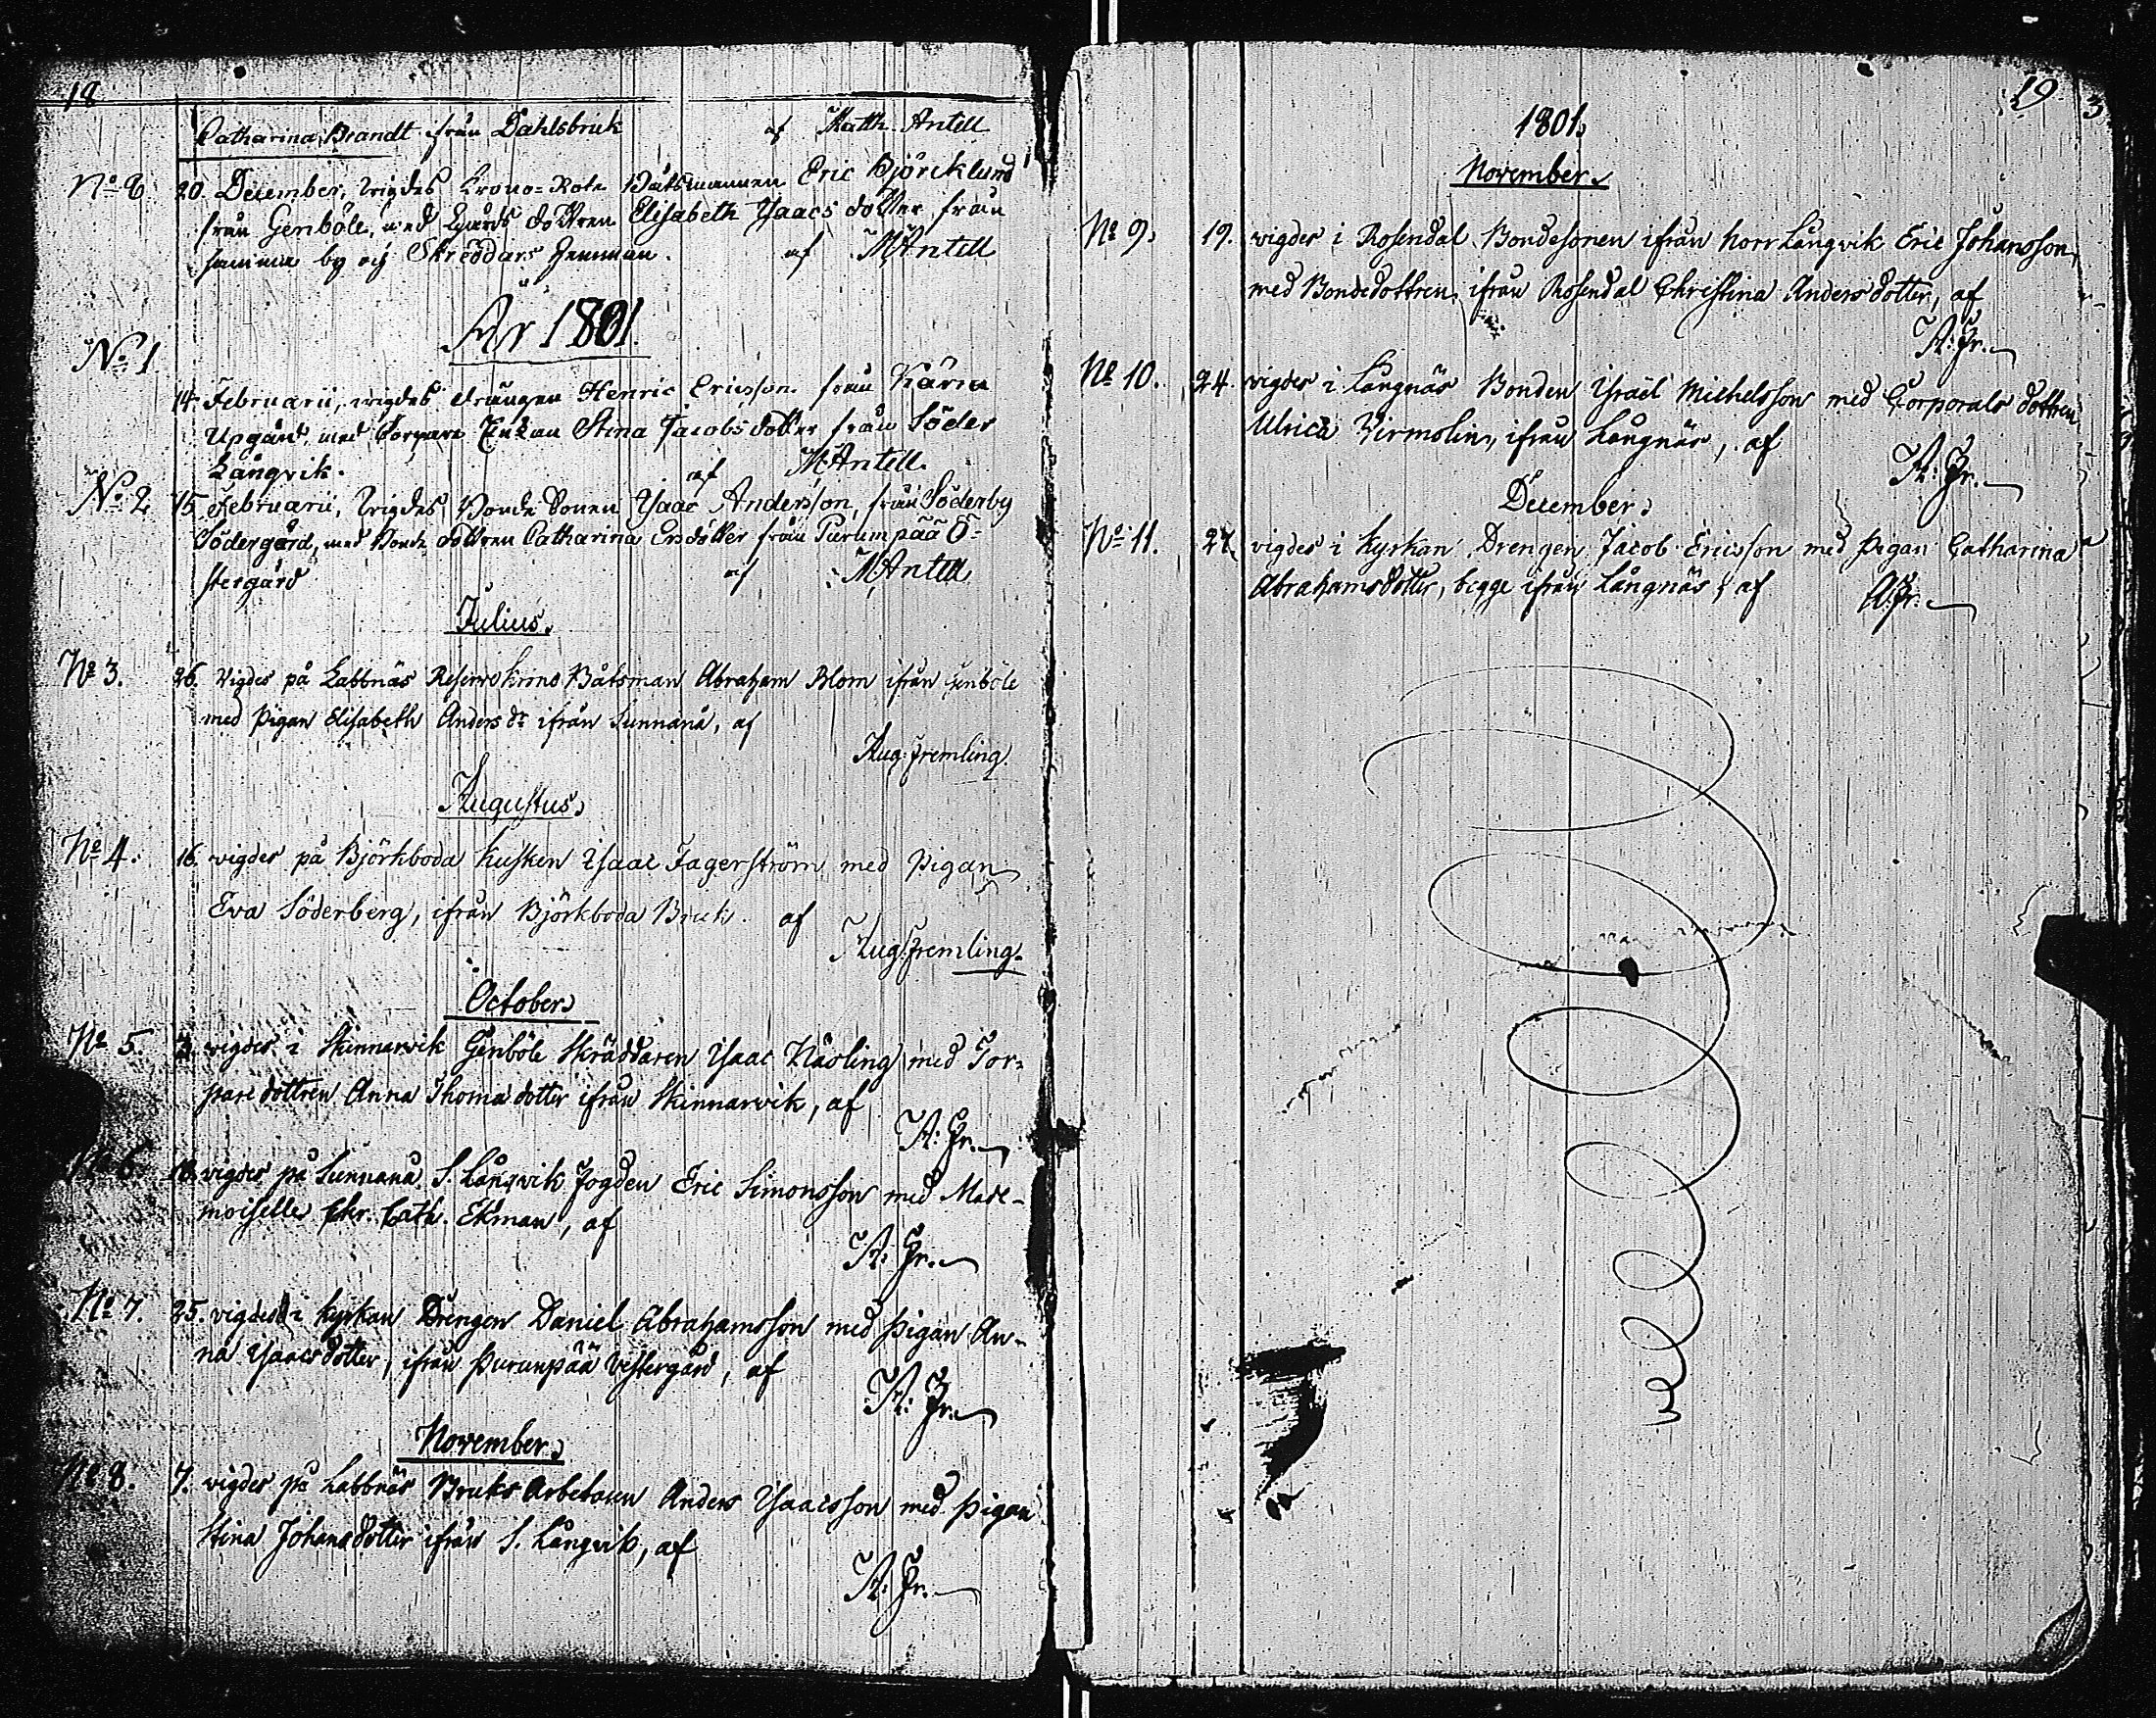 18
Catharina Brandt från Dahlsbruk af Matth. Antell
No 8 20. December, Wigdes Krono-Rote Båtsmannen Eric Björcklund
från Genböle, med dottren Elisabeth Isaacs dotter från
samma by och Skreddars hemman. af MAntell
År 1801.
No 1
14. Februarii, wigdes drängen Henric Ericsson från Kärra
Upgård, med Torpare Enkan Stina Jacobs dotter från Söder
Långvik. af MAntell.
No 2 15 Februarii, Wigdes Bonde Sonen Isaac Andersson, från Söderby
Södergård, med Bonde dottren Catharina Ersdotter från Purunpää Ö-
stergård af MAntell
Julius.
No 3. 26. Vigdes på Labbnäs Båtsman Abraham Blom ifrån Genböle
med Pigan Elisabeth Anders dr ifrån Sunnanå, af
Aug: Fremling.
Augustus.
No 4. 16. vigdes på Björkboda Kusken Isaac Fagerström med Pigan
Eva Söderberg, ifrån Björkboda Bruk. af
Aug: Fremling.
October.
No 5. vigdes i Skinnarvik Genböle Skräddaren Isaac med Tor-
pare dottren Anna Thomadotter ifrån Skinnarvik, af
A: Fr.
No 6. vigdes på Sunnanå S. Långvik Fogden Eric Simonsson med Made-
moiselle Chr. Cath. Ekman, af
A: Fr.
No 7. 25. vigdes i Kyrkan Drengen Daniel Abrahamsson med Pigan An-
na Isaacsdotter, ifrån Purunpää Vestergård, af
A: Fr.
November.
No 8. 7. vigdes på Labbnäs Bruks Arbetaren Anders Isaacsson med Pigan
Stina Johansdotter ifrån S. Långvik, af
A: Fr.
19
3
1801.
November.
No 9. 19. vigdes i Rosendal Bondesonen ifrån Norr Långvik Eric Johansson,
med Bondedottren ifrån Rosendal Christina Andersdotter, af
A: Fr.
No 10. 24. vigdes i Långnäs Bonden Israel Michelsson med Corporals dottren
Ulrica Virmolin, ifrån Långnäs, af
A: Fr.
December.
No 11. 27. vigdes i Kyrkan Drengen Jacob Ericsson med Pigan Catharina
Abrahamsdotter, begge ifrån Långnäs, af A: Fr.